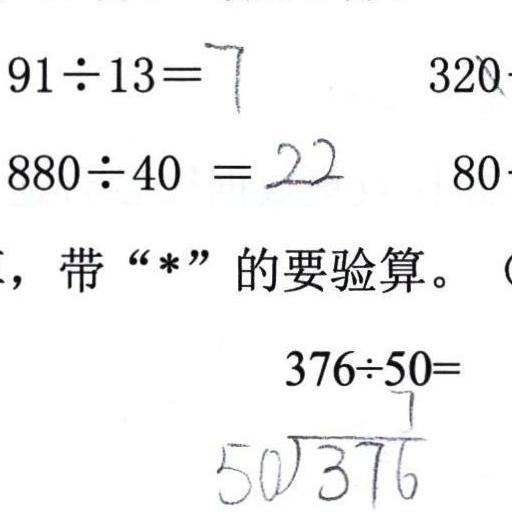 91÷13=7 320
880÷40 =22 80
，带“*”的要验算。（
376÷50=
7
50)376